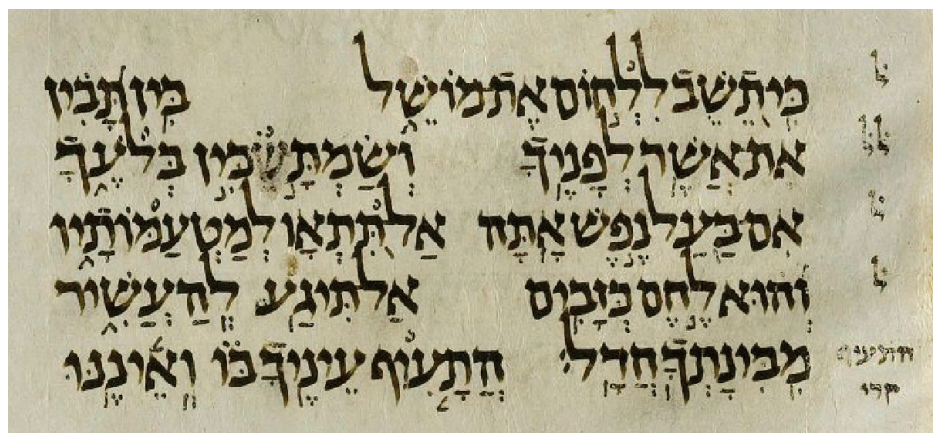 כִּי תֵשֵׁב לִלְחוֹם אֶת מוֹשֵׁל בִּין תָּבִין ל
אֶת אֲשֶׁר לְפָנֶיךָ וְשַׂמְתָּ שַׂכִּין בְּלֹעֶךָ ל ל
אִם בַּעַל נֶפֶשׁ אָתָּה אַל תִּתְאָו לְמַטְעַמּוֹתָיו ל
וְהוּא לֶחֶם כְּזָבִים אַל תִּיגַע לְהַעֲשִׁיר ל
מִבִּינָתְךָ חֲדָל׃ הֲתָעִוף עֵינֶיךָ בּוֹ וְאֵינֶנּוּ התעיף
קרי